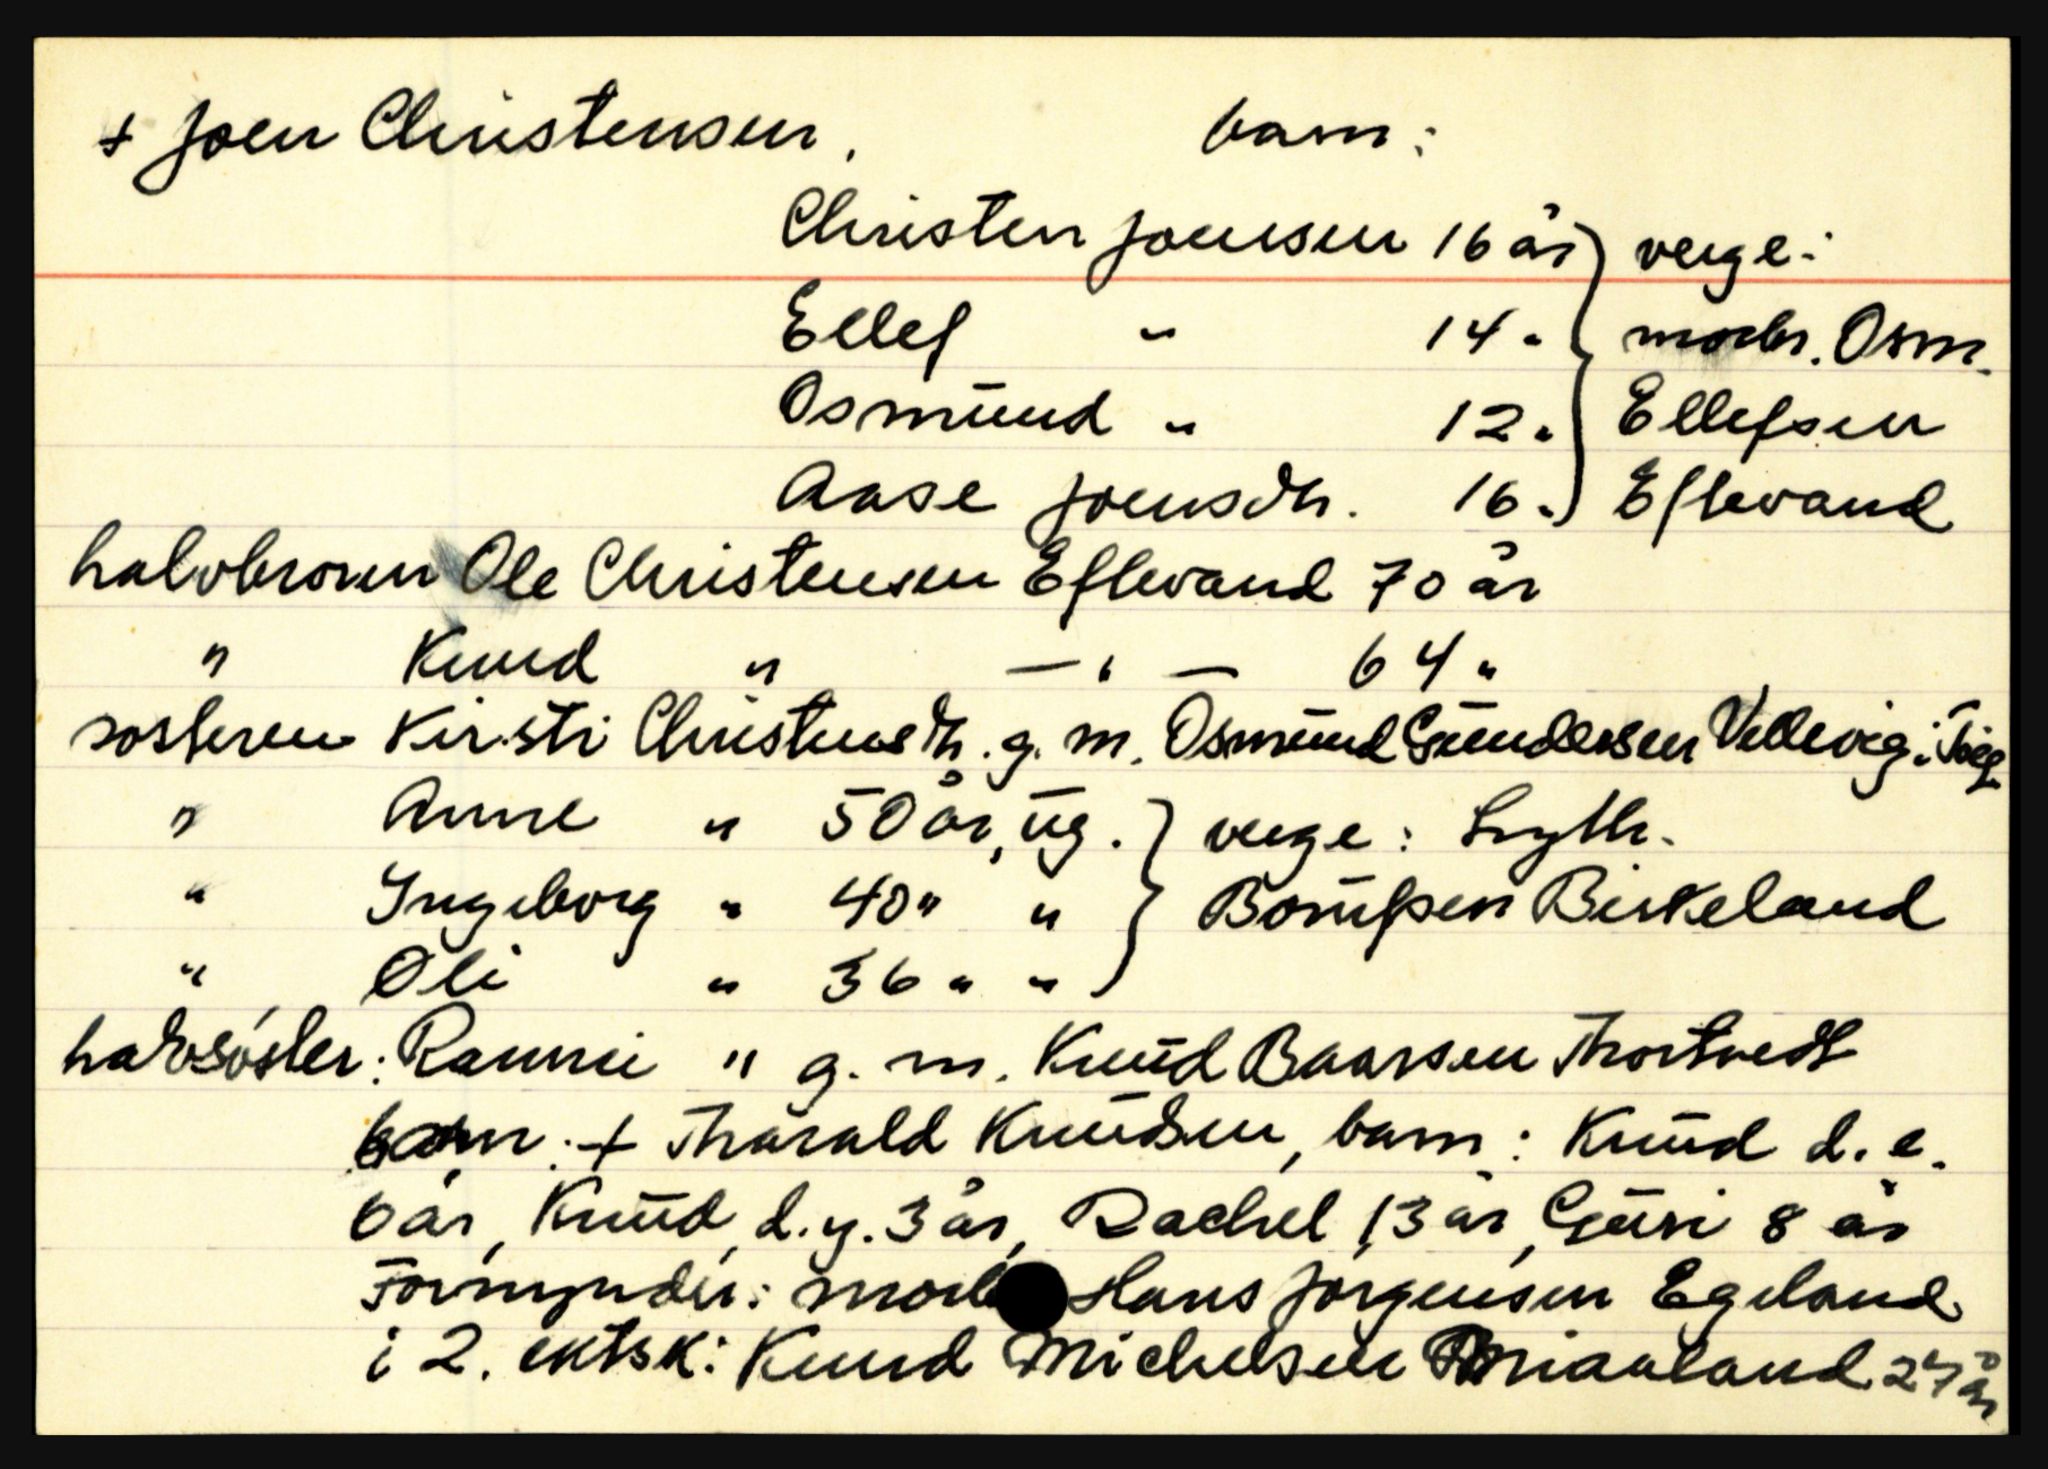 + Joen Christensen, barn:
Christen Joensen 16 år } verge:
Ellef " 14 " morbr. Osm.
Osmund " 12 " Ellefsen
Aase Joensdtr. 16 " Eftevand
halvbroren Ole Christensen Eftevand 70 år
" Knud " — " — 64 "
søsteren Kirsti Christensdtr. g. m. Osmund Gundersen Vellevig i
" Anne " 50 år, ug. } verge:
" Ingeborg " 40 " " Birkeland
" Oli " 36 " "
halvsøster: Ranni " g. m. Knud Baarsen Thortvedt
barn: + Tharald Knudsen, barn: Knud d. e.
6 år, Knud d. y. 3 år, Rachel 13 år, Guri 8 år
Formynder: Hans Jørgensen Egeland
i 2. ektsk: Knud Michelsen 27 år